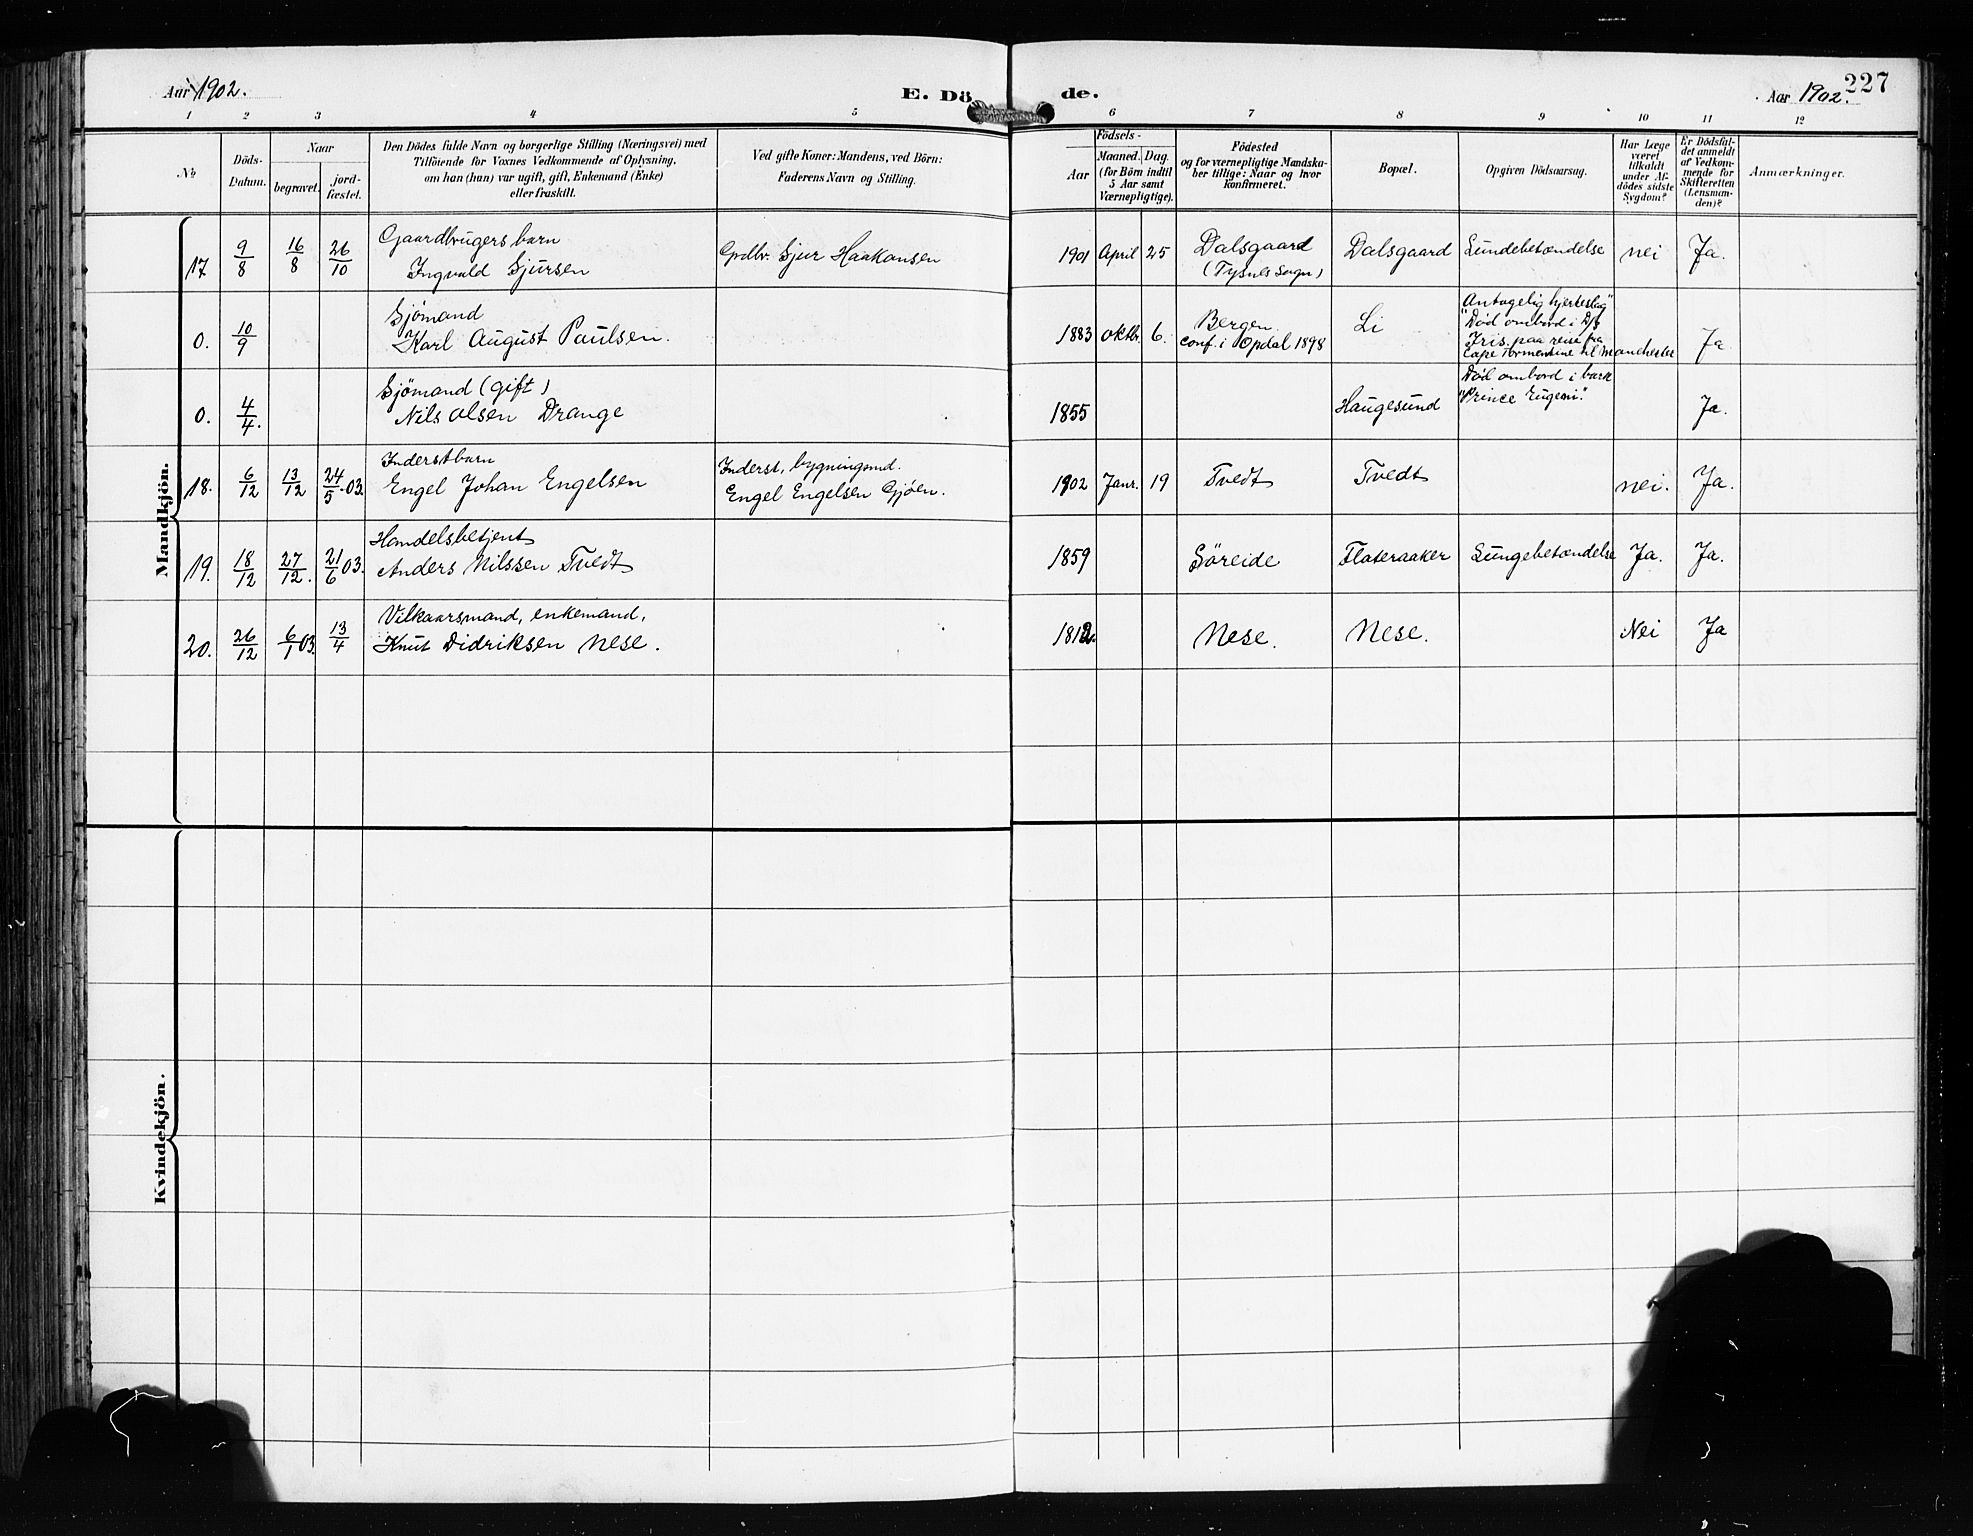 Aar 1902.
E. Dö
de.
Aar 1902.
227
1 2 3 4 5 6 7 8 9 10 11 12
No
Döds-
Datum.
Naar
begravet.
jord-
fæstet.
Den Dödes fulde Navn og borgerlige Stilling (Næringsvei) med
Tilföiende for Voxnes Vedkommende af Oplysning,
om han (hun) var ugift, gift, Enkemand (Enke)
eller fraskilt.
Ved gifte Koner: Mandens, ved Börn:
Faderens Navn og Stilling.
Födsels-
Aar
Maaned. Dag.
(for Börn indtil
5 Aar samt
Værnepligtige).
Födested
og for værnepligtige Mandska-
ber tillige: Naar og hvor
konfirmeret.
Bopæl.
Opgiven Dödsaarsag.
Har Læge
været
tilkaldt
under Af-
dödes sidste
Sygdom?
Er Dödsfal-
det anmeldt
af Vedkom-
mende for
Skifteretten
(Lensman-
den)?
Anmærkninger.
Mandkjön.
17 9/8 16/8 26/10
Gaardbrugers barn
Ingvald Sjursen
Grdbr. Sjur Haakonsen
1901 April 25
Dalsgaard
(Tysnes Sogn)
Dalsgaard
Lundebetændelse
nei
Ja.
0. 10/9
Sjømand
Karl August Paulsen.
1883 oktbr. 6.
Bergen
conf. i Opdal 1898
Li
Antagelig hjerteslag"
"Død ombord i D/S
Iris. paa reise fra
Cape Tormentine til Manchester
Ja
0. 4/4.
Sjømand (gift)
Nils Olsen Drange
1855
Haugesund
Død ombord i bark
"Prince Eugen".
Ja.
18. 6/12 13/12 24/5.03.
Inderstbarn
Engel Johan Engelsen
Inderst, bygningsmd.
Engel Engelsen Gjøen.
1902 Janr. 19
Tvedt
Tvedt
nei.
Ja.
19. 18/12 27/12. 21/6 03.
Handelsbetjent
Anders Nilssen Tvedt
1859
Søreide
Flateraaker
Lungebetændelse
Ja.
Ja.
20. 26/12 6/1 03. 13/4
Vilkaarsmand, enkemand,
Knut Didriksen Nese.
1812.
Nese.
Nese.
Nei
Ja
Kvindekjön.